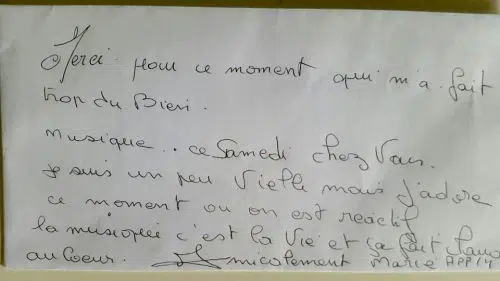 Merci pour ce moment qui m'a fait
trop du Bien.
Musique .. ce Samedi chez Vous.
Je suis un peu Vielle mais j'adore
ce moment ou on est reactif
la musique c'est la Vie et ça fait chaud
au Coeur. Amicalement Marie APP 14